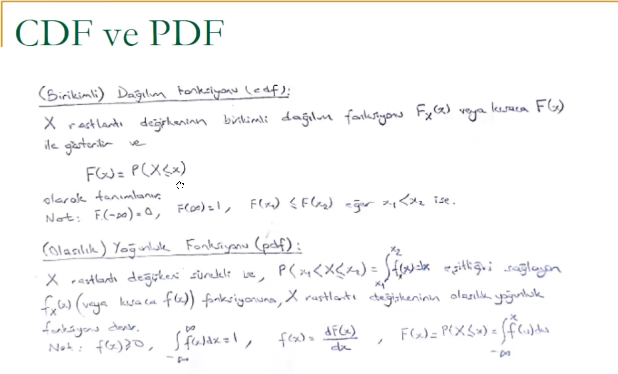 CDF ve PDF
(Birikimli) Dağılım fonksiyonu (cdf):
X rastlantı değişkeninin birikimli dağılım fonksiyonu F_X(x) veya kısaca F(x)
ile gösterilir ve
F(x) = P(X≤x)
olarak tanımlanır.
Not: F(-∞)=0, F(∞)=1, F(x₁) ≤ F(x₂) eğer x₁<x₂ ise.
(Olasılık) Yoğunluk Fonksiyonu (pdf):
X rastlantı değişkeni sürekli ise, P(x₁<X≤x₂) = ∫_{x₁}^{x₂} f(x)dx eşitliğini sağlayan
f_X(x) (veya kısaca f(x)) fonksiyonuna, X rastlantı değişkeninin olasılık yoğunluk
fonksiyonu denir.
Not: f(x)≥0, ∫_{-∞}^{∞} f(x)dx=1, f(x) = dF(x)/dx, F(x) = P(X≤x) = ∫_{-∞}^{x} f(u)du